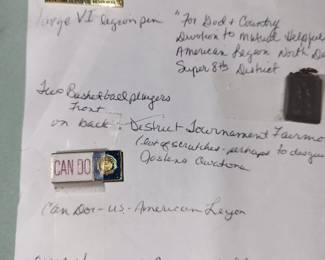 large VI legion pin
"For God + Country
Devotion to mutual Helpful
American Legion North D
Super 8th District
Two Basketball players
Front
on back - District Tournament Fairmo
(lot of scratches - perhaps to disgu
Jostens Owatona
CAN DO
Can Do - US - American Legion